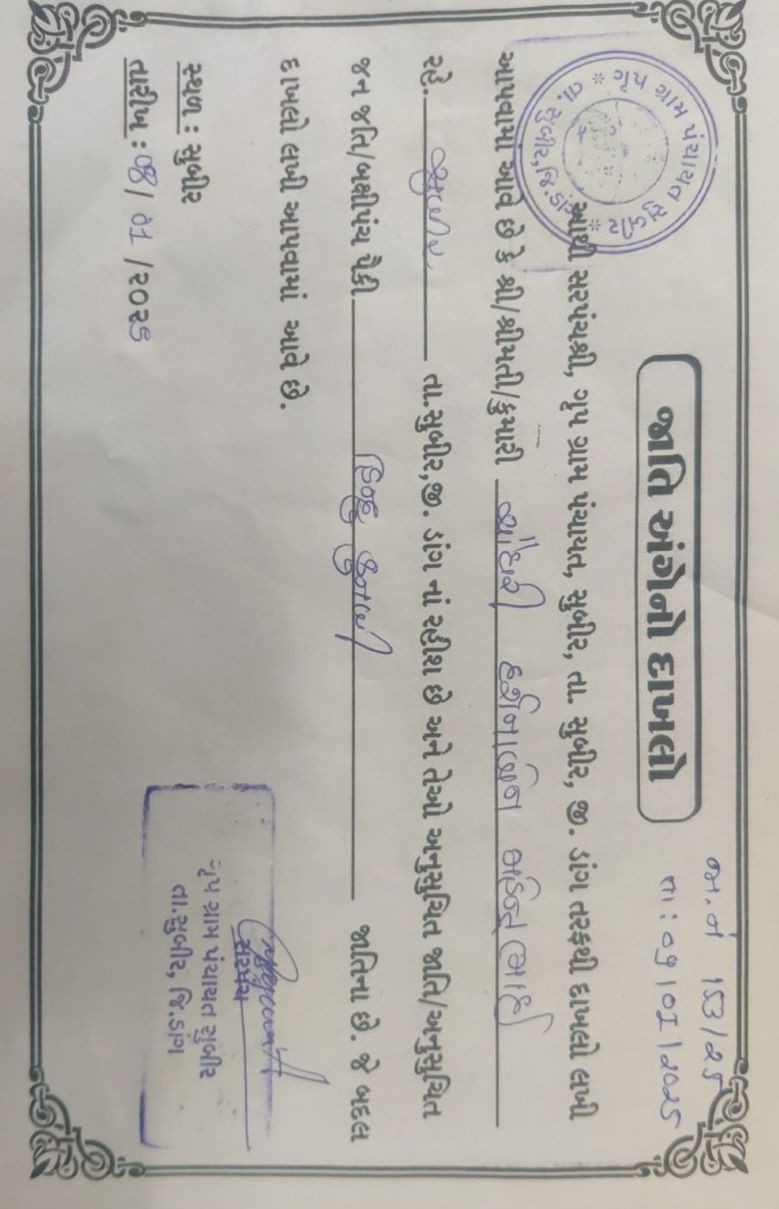 જા.નં 153/25
તા: 09/01/2025
જાતિ અંગેનો દાખલો
આથી સરપંચશ્રી, ગૃપ ગ્રામ પંચાયત, સુબીર, તા. સુબીર, જી. ડાંગ તરફથી દાખલો લખી
આપવામાં આવે છે કે શ્રી/શ્રીમતી/કુમારી દર્શનાબેન મહેન્દ્રભાઈ
રહે. સુબીર તા.સુબીર,જી. ડાંગ નાં રહીશ છે અને તેઓ અનુસુચિત જાતિ/અનુસુચિત
જન જાતિ/બક્ષીપંચ પૈકી હિન્દુ કુનબી જાતિના છે. જે બદલ
દાખલો લખી આપવામાં આવે છે.
સ્થળ : સુબીર
તારીખ : /01 /૨૦૨૬
સરપંચ
ગૃપ ગ્રામ પંચાયત સુબીર
તા.સુબીર, જિ.ડાંગ
ગ્રામ પંચાયત સુબીર
તા. સુબીર, જી.ડાંગ